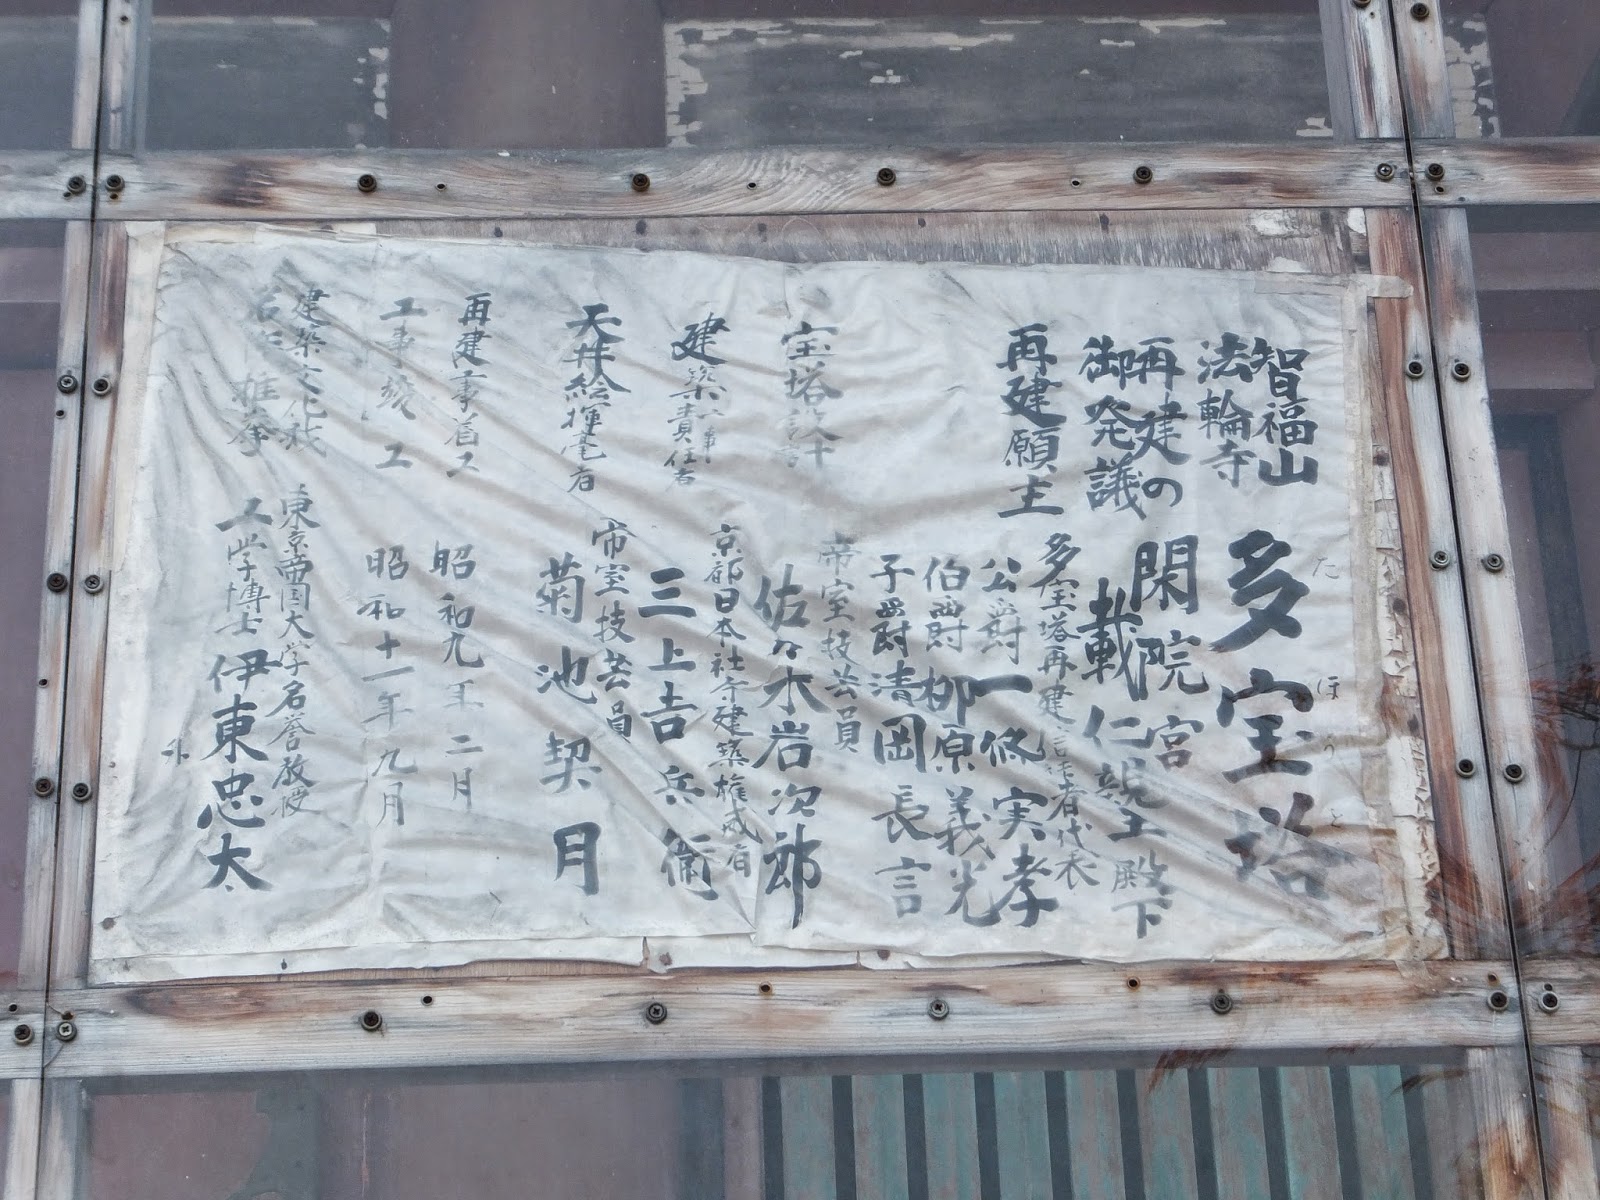 智福山
法輪寺
多宝塔
たほうとう
再建の
御発議
閑院宮
載仁親王殿下
再建願主
多宝塔再建信徒者代表
公爵一條実孝
伯爵柳原義光
子爵清岡長言
宝塔設計
帝室技芸員
佐々木岩次郎
建築工事責任者
京都日本社寺建築権威者
三上吉兵衛
天井絵揮毫者
帝室技芸員
菊池契月
再建事着工
昭和九年二月
工事竣工
昭和十一年九月
建築文化我
東京帝国大学名誉教授
工学博士伊東忠太